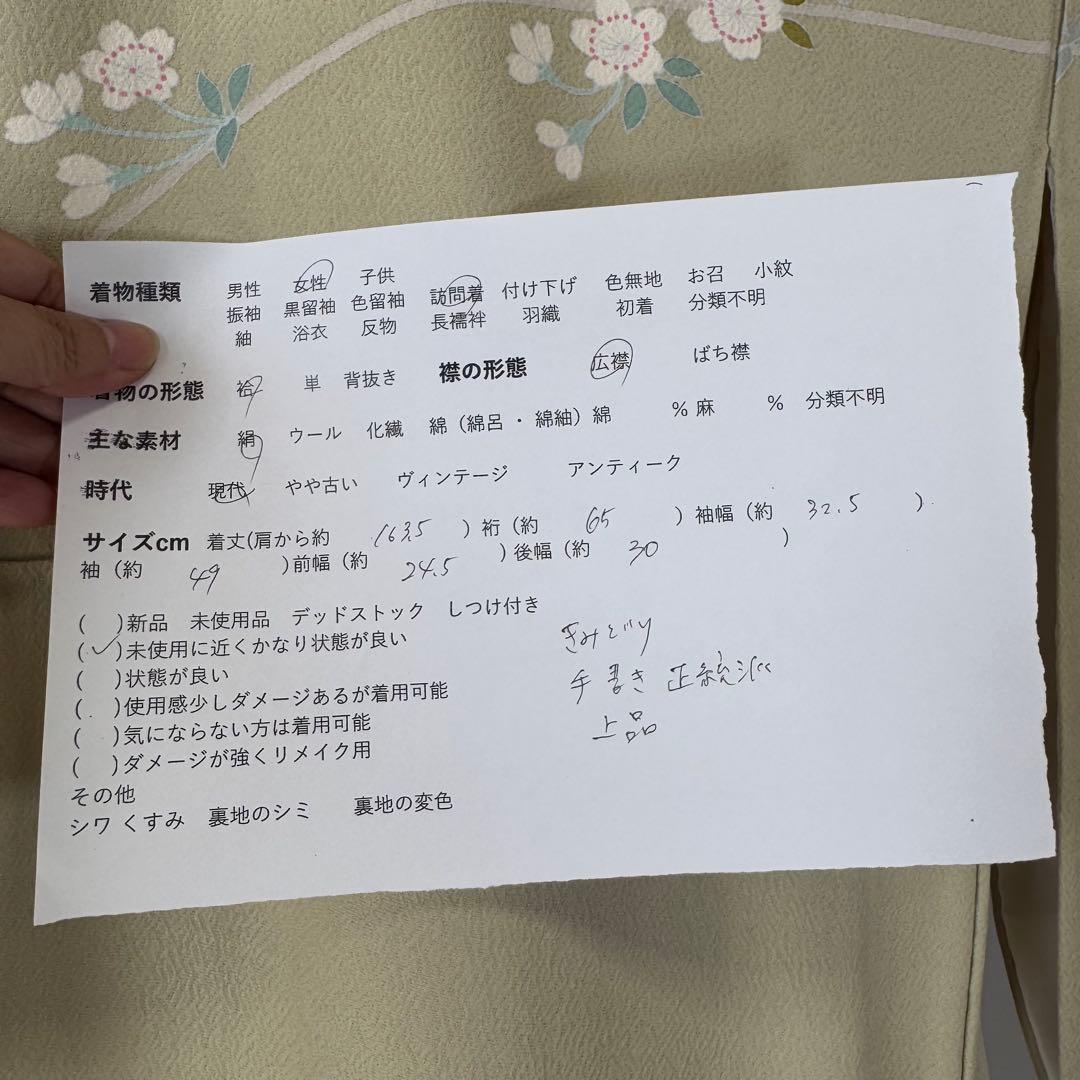 着物種類 男性 女性 子供
振袖 黒留袖 色留袖 訪問着 付け下げ 色無地 お召 小紋
紬 浴衣 反物 長襦袢 羽織 初着 分類不明
着物の形態 袷 単 背抜き 襟の形態 広襟 ばち襟
主な素材 絹 ウール 化繊 綿（綿呂・綿紬）綿 % 麻 % 分類不明
時代 現代 やや古い ヴィンテージ アンティーク
サイズcm 着丈(肩から約 163.5 ) 裄（約 65 ）袖幅（約 32.5 ）
袖（約 49 )前幅（約 24.5 )後幅（約 30 )
( )新品 未使用品 デッドストック しつけ付き
(✓)未使用に近くかなり状態が良い
( )状態が良い
( )使用感少しダメージあるが着用可能
( )気にならない方は着用可能
( )ダメージが強くリメイク用
きみどり
手書き 正統派
上品
その他
シワ くすみ 裏地のシミ 裏地の変色